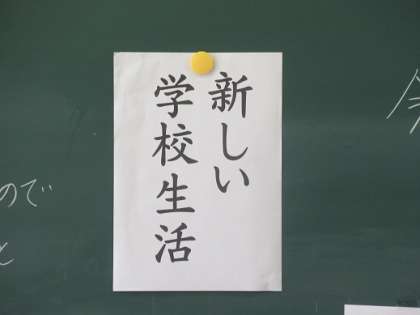 新しい
学校生活
ので
と